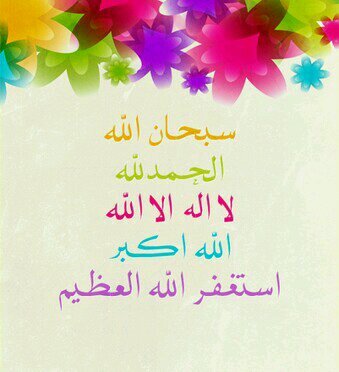 سبحان الله
الحمدلله
لا اله الا الله
الله اكبر
استغفر الله العظيم